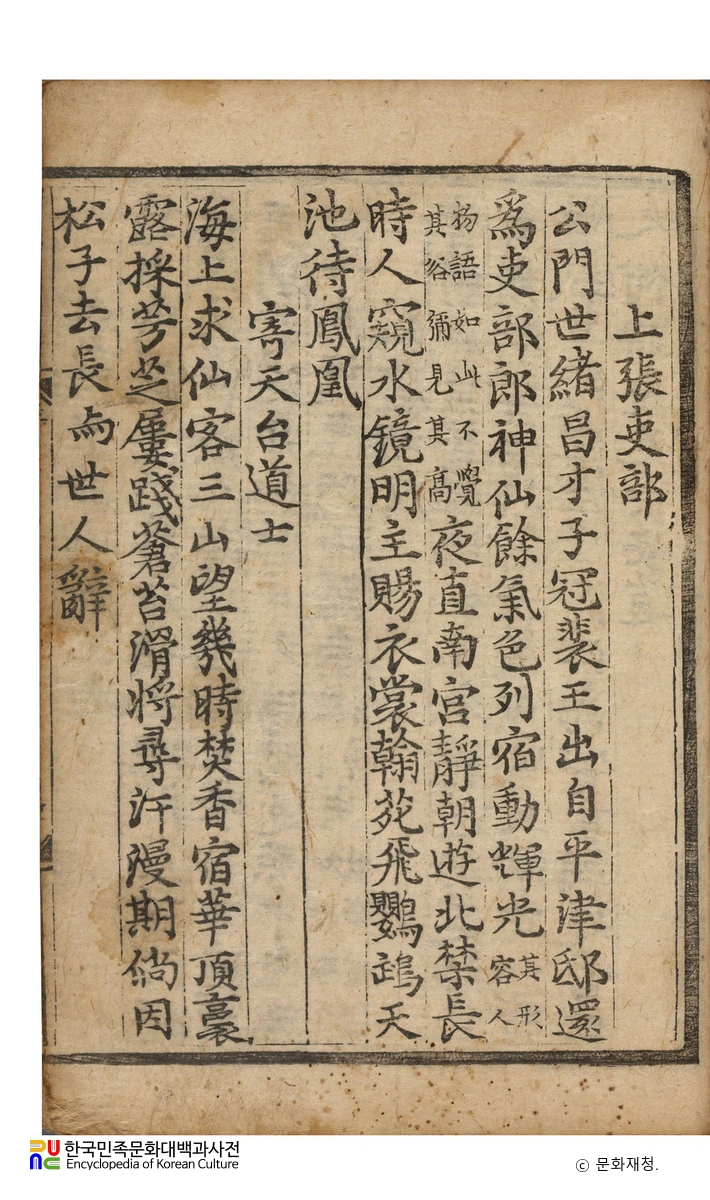 上張吏部
公門世緒昌才子冠裴王出自平津邸還
爲吏部郎神仙餘氣色列宿動輝光其形容人
物語如此不覺其俗彌見其高夜直南宮靜朝遊北禁長
時人窺水鏡明主賜衣裳翰苑飛鸚鵡天
池待鳳凰
寄天台道士
海上求仙客三山望幾時焚香宿華頂裛
露採芳芝屢踐蒼苔滑將尋汗漫期倘因
松子去長与世人辭
한국민족문화대백과사전
Encyclopedia of Korean Culture
ⓒ 문화재청.